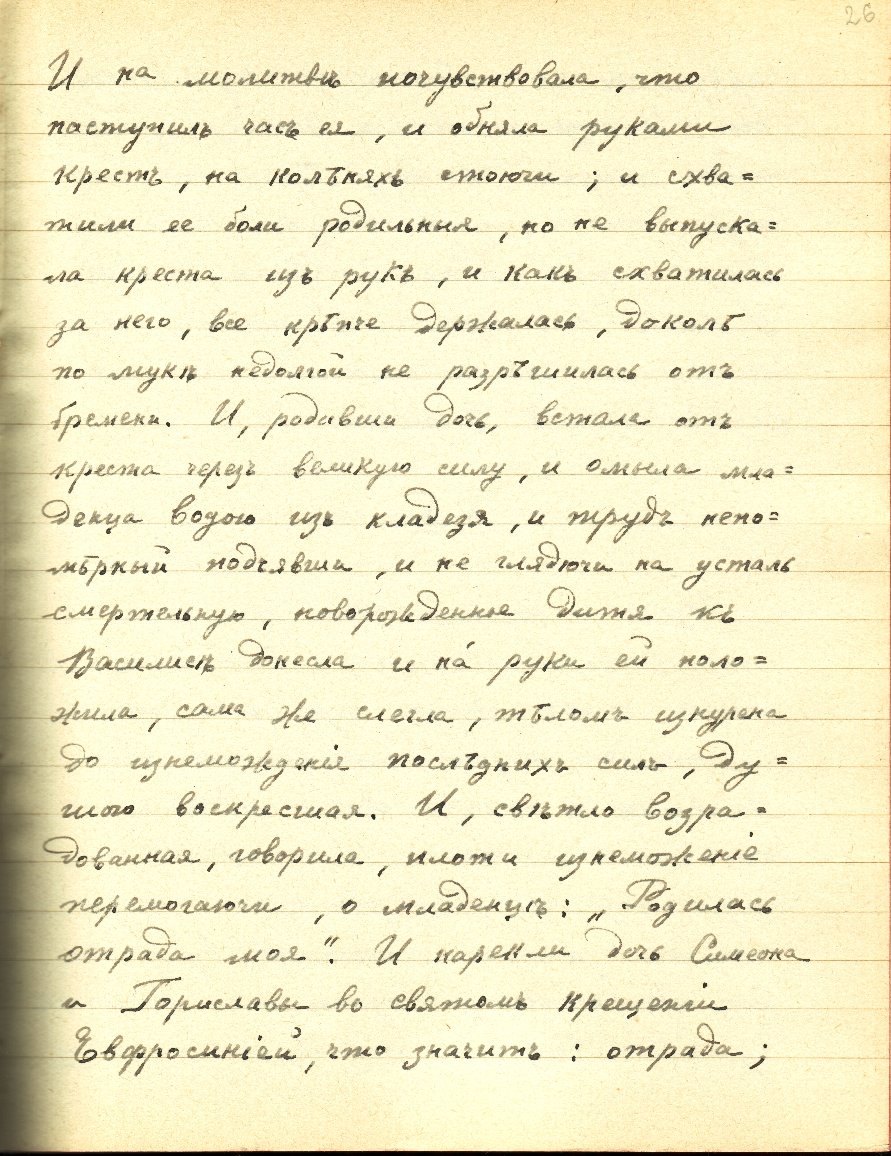 26
И на молитвѣ почувствовала, что
наступилъ часъ ея, и обняла руками
крестъ, на колѣняхъ стоючи; и схва=
тили ее боли родильныя, но не выпуска=
ла креста изъ рукъ, и какъ схватилась
за него, все крѣпче держалась, доколѣ
по мукѣ недолгой не разрѣшилась отъ
бремени. И, родивши дочь, встала отъ
креста черезъ великую силу, и омыла мла=
денца водою изъ кладезя, и трудъ непо=
мѣрный подъявши, и не глядючи на усталь
смертельную, новорожденное дитя къ
Василисѣ донесла и на́ руки ей поло=
жила, сама же слегла, тѣломъ изнурена
до изнеможденія послѣднихъ силъ, ду=
шою воскресшая. И, свѣтло возра=
дованная, говорила, плоти изнеможеніе
перемогаючи, о младенцѣ: „Родилась
отрада моя“. И нарекли дочь Симеона
и Гориславы во святомъ крещеніи
Евфросиніей, что значитъ: отрада;